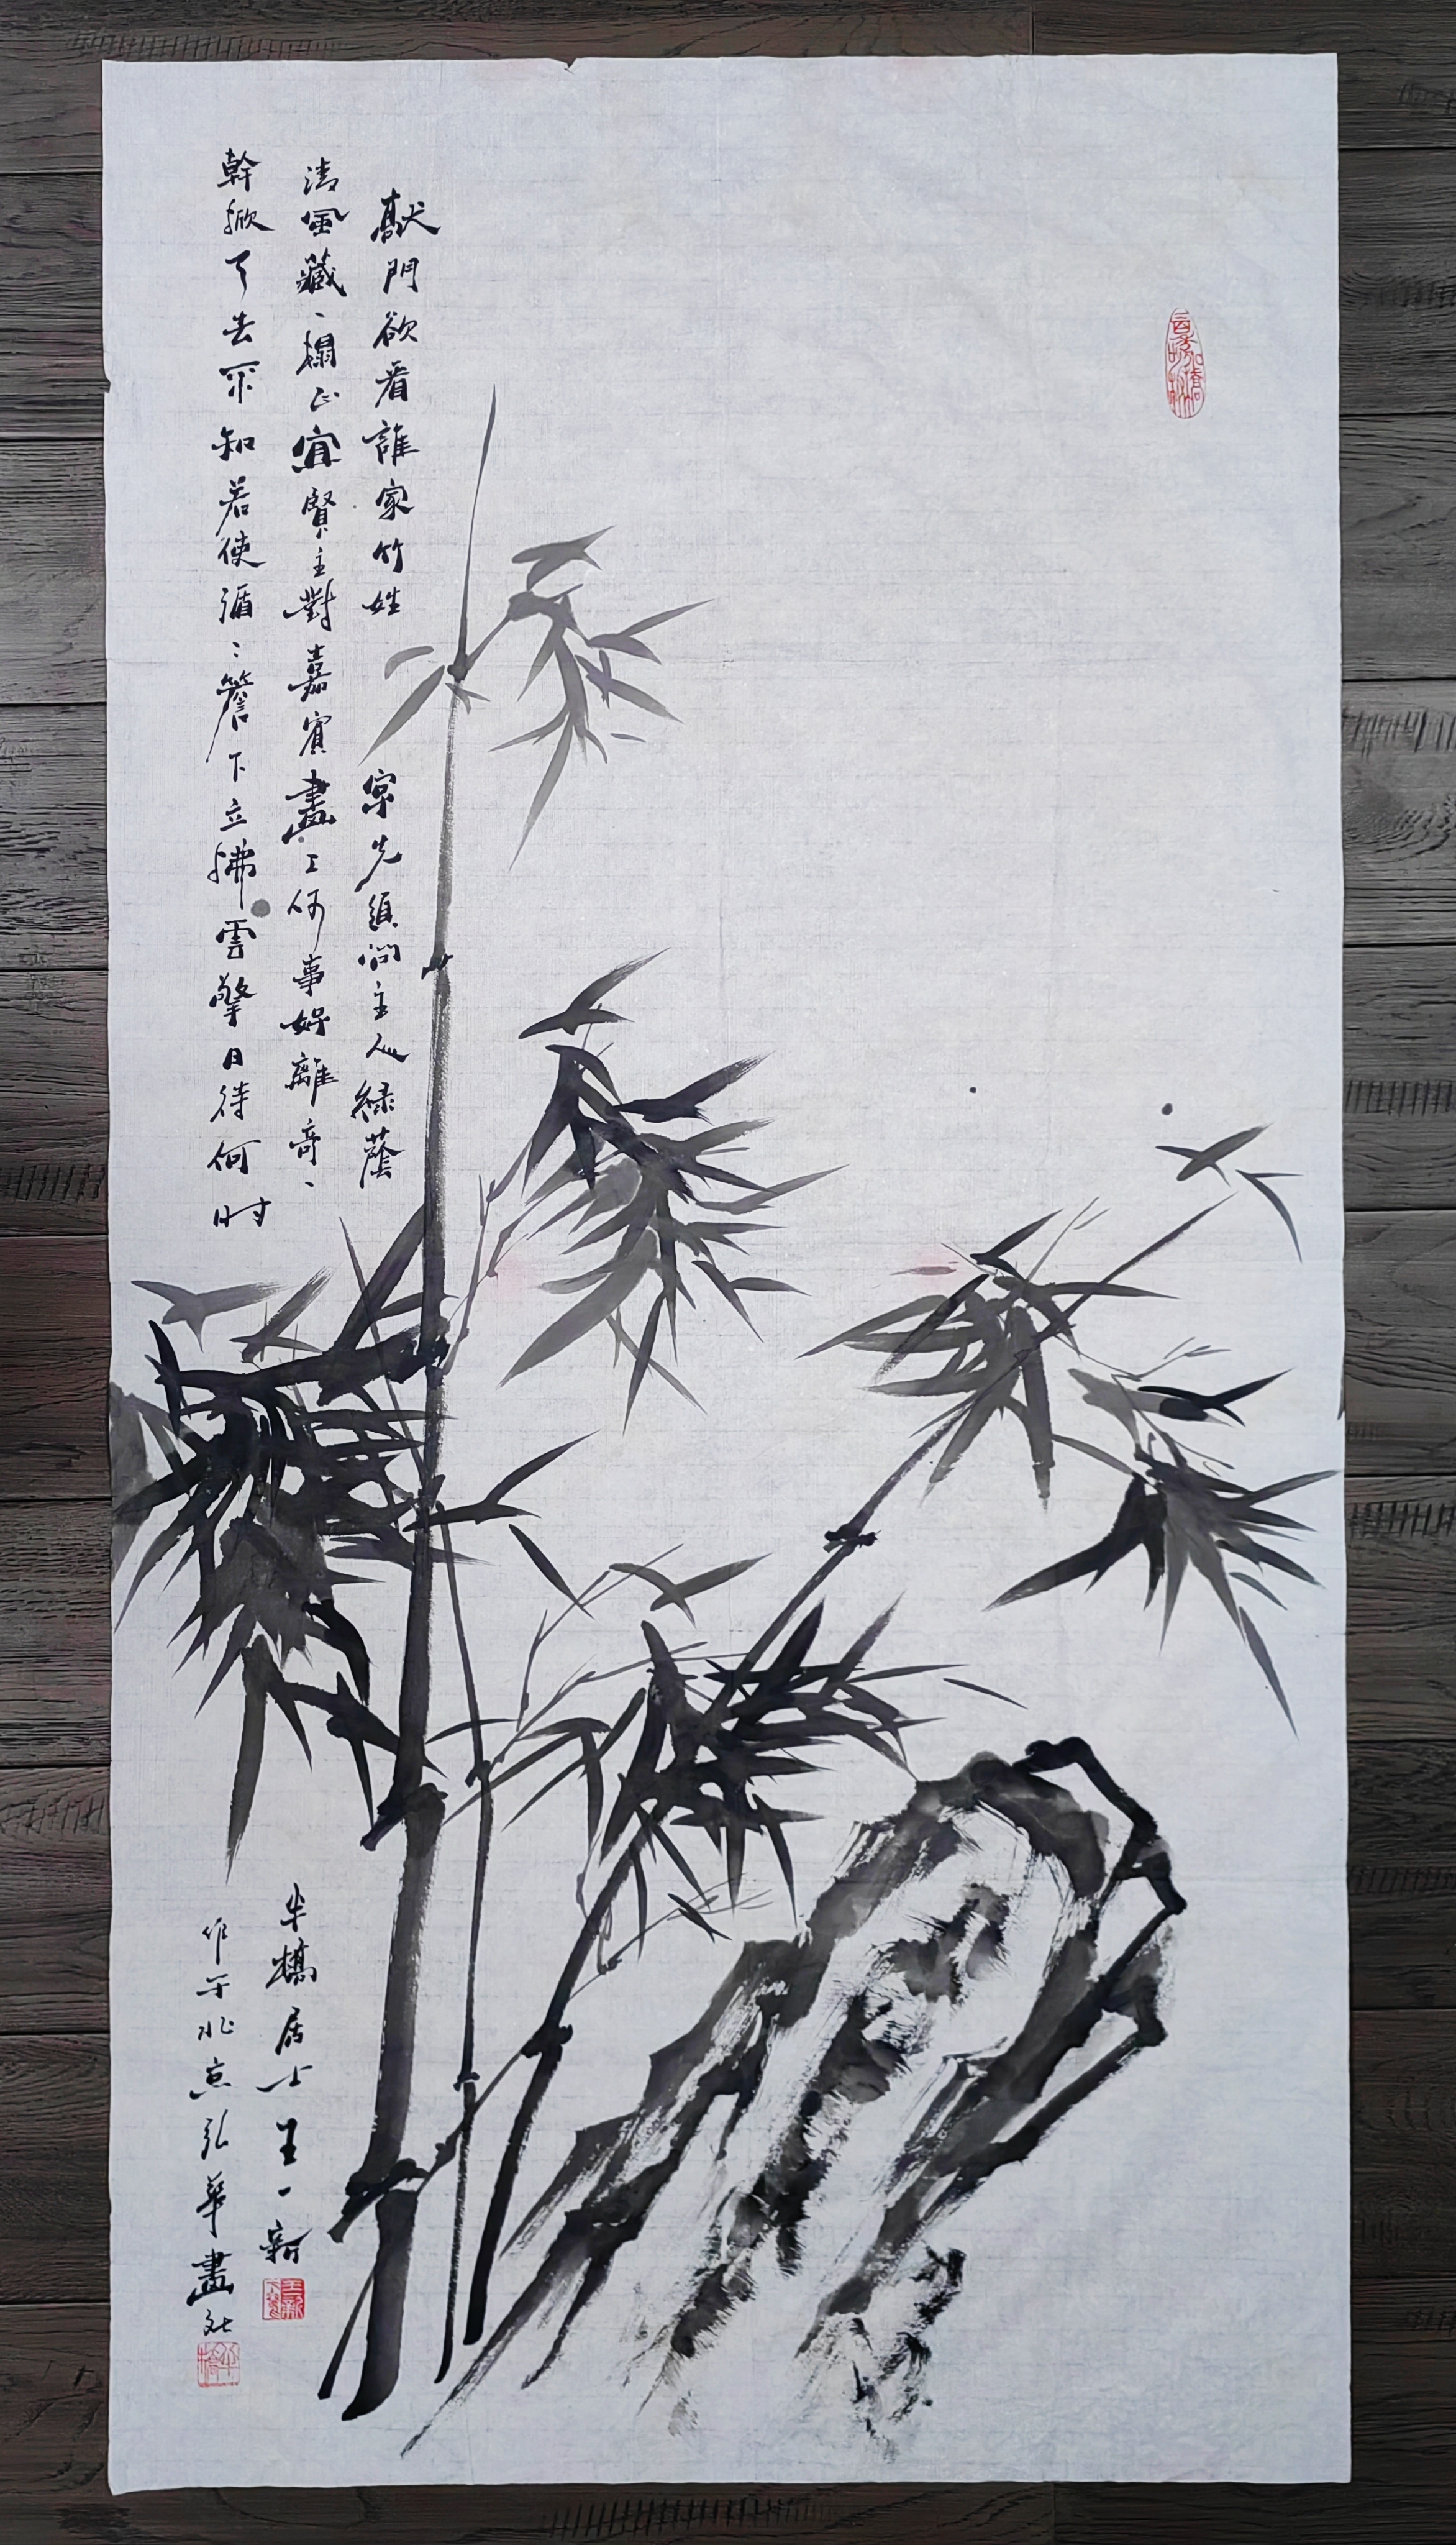 敲門欲看誰家竹姓字先須問主人綠蔭
清風藏一榻正宜賢主對嘉賓畫工何事好離奇一
幹掀天去不知若使循々簷下立拂雲擎日待何时
半橋居士王一新
作于北京弘華畫社